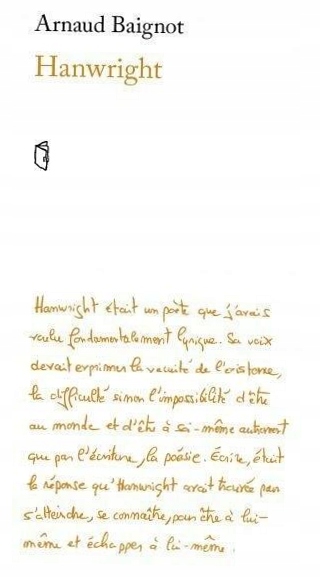 Arnaud Baignot
Hanwright
Hanwright était un poète que j'avais
voulu fondamentalement lyrique. Sa voix
devait exprimer la vacuité de l'existence,
la difficulté sinon l'impossibilité d'être
au monde et d'être à soi-même autrement
que par l'écriture, la poésie. Écrire, était
la réponse qu'Hanwright avait trouvée pour
s'atteindre, se connaître, pour être à lui-
même et échapper à lui-même.